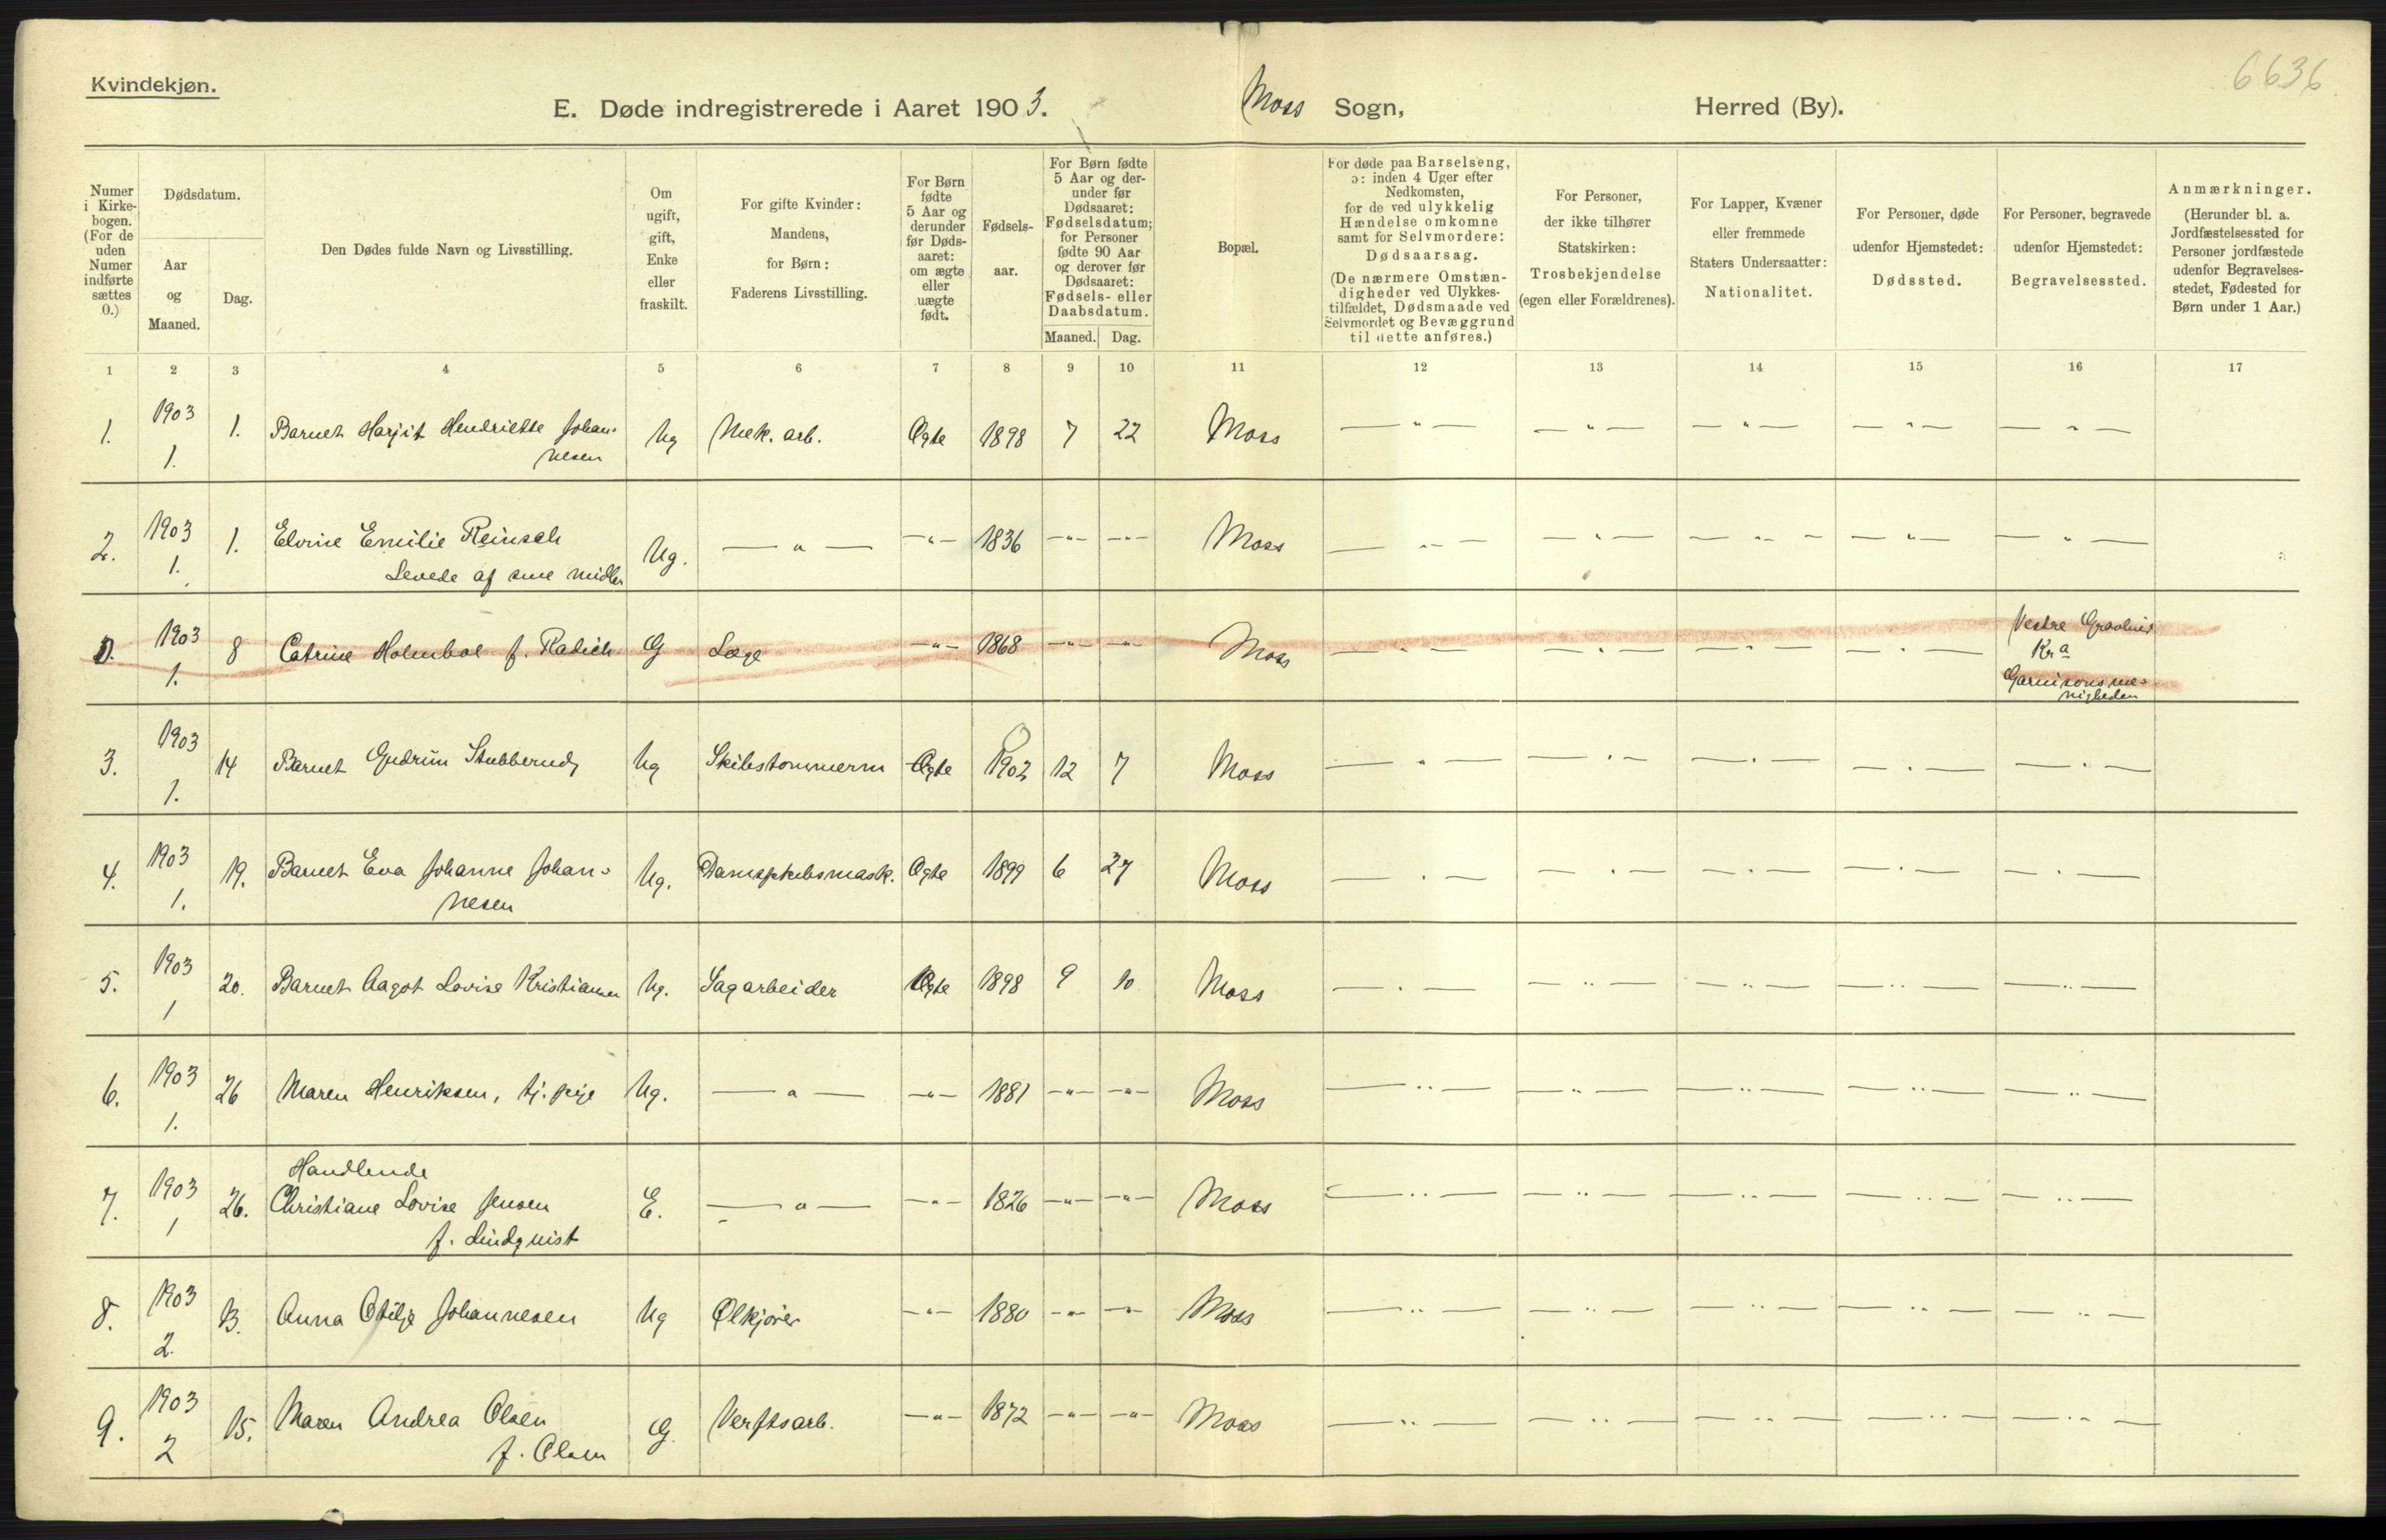 Kvindekjøn.
6636
E. Døde indregistrerede i Aaret 1903. Moss Sogn, Herred (By).
Numer i Kirkebogen. (For de uden Numer indførte sættes 0.)
Dødsdatum.
Aar og Maaned.
Dag.
Den Dødes fulde Navn og Livsstilling.
Om ugift, gift, Enke eller fraskilt.
For gifte Kvinder: Mandens, for Børn: Faderens Livsstilling.
For Børn fødte 5 Aar og derunder før Dødsaaret: om ægte eller uægte født.
Fødselsaar.
For Børn fødte 5 Aar og derunder før Dødsaaret: Fødselsdatum; for Personer fødte 90 Aar og derover før Dødsaaret: Fødsels- eller Daabsdatum.
Maaned. Dag.
Bopæl.
For døde paa Barselseng, ɔ: inden 4 Uger efter Nedkomsten, for de ved ulykkelig Hændelse omkomne samt for Selvmordere: Dødsaarsag. (De nærmere Omstændigheder ved Ulykkestilfældet, Dødsmaade ved Selvmordet og Bevæggrund til dette anføres.)
For Personer, der ikke tilhører Statskirken: Trosbekjendelse (egen eller Forældrenes).
For Lapper, Kvæner eller fremmede Staters Undersaatter: Nationalitet.
For Personer, døde udenfor Hjemstedet: Dødssted.
For Personer, begravede udenfor Hjemstedet: Begravelsessted.
Anmærkninger. (Herunder bl. a. Jordfæstelsessted for Personer jordfæstede udenfor Begravelsesstedet, Fødested for Børn under 1 Aar.)
1 2 3 4 5 6 7 8 9 10 11 12 13 14 15 16 17
1. 1903 1. 1. Barnet Harjit Hendriette Johannesen Ug Mek. arb. Ægte 1898 7 22 Moss — " — — " — — " — — " — — " —
2. 1903 1. 1. Elvine Emilie Reinsch Levede af sine midler Ug. — " — — " — 1836 — " — — " — Moss — " — — " — — " — — " — — " —
0. 1903 1. 8 Catrine Holmboe f. Radich G Læge — " — 1868 — " — — " — Moss — " — — " — — " — — " — Vestre Gravlund Kr a Garnisonsmenigheden
3. 1903 1. 14 Barnet Gudrun Stubberud Ug Skibstømmerm Ægte 1902 12 7 Moss — " — — " — — " — — " — — " —
4. 1903 1. 19. Barnet Eva Johanne Johannesen Ug. Dampskibsmask. Ægte 1899 6 27 Moss — " — — " — — " — — " — — " —
5. 1903 1 20. Barnet Aagot Lovise Kristiansen Ug. Sagarbeider Ægte 1898 9 10 Moss — " — — " — — " — — " — — " —
6. 1903 1. 26 Maren Henriksen, tj. pige Ug. — " — — " — 1881 — " — — " — Moss — " — — " — — " — — " — — " —
7. 1903 1 26. Handlende Christiane Lovise Jensen f. Lindquist E. — " — — " — 1826 — " — — " — Moss — " — — " — — " — — " — — " —
8. 1903 2. 13. Anna Otilje Johannesen Ug Ølkjører — " — 1880 — " — — " — Moss — " — — " — — " — — " — — " —
9. 1903 2 15. Maren Andrea Olsen f. Olsen G. Verftsarb. — " — 1872 — " — — " — Moss — " — — " — — " — — " — — " —